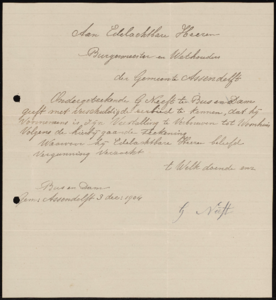 Aan Edelachtbare Heeren
Burgemeester en Wethouders
der Gemeente Assendelft
Ondergeteekende G Neeft te Bus en Dam
geeft met verschuldigd eerbied te kennen, dat hij
Voornemens is zijn Verstelling te Verbouwen tot Woonhuis
Volgens de hierbij gaande Teekening
Waarvoor hij Edelachtbare Heeren beleefd
Vergunning Verzoekt
't Welk doende enz
Bus en Dam
Gem Assendelft 3 dec 1904
G Neeft